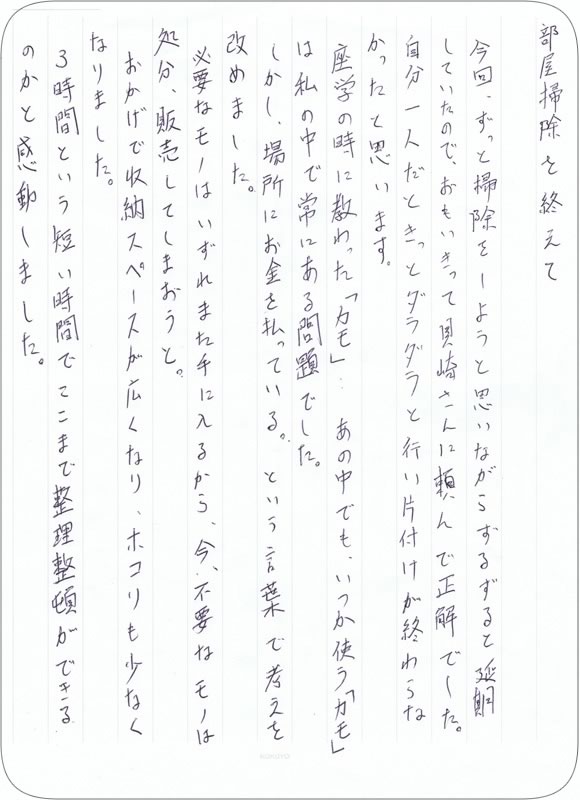 部屋掃除を終えて
今回、ずっと掃除をしようと思いながらずるずると延期
していたので、おもいきって貝崎さんに頼んで正解でした。
自分一人だときっとダラダラと行い片付けが終わらな
かったと思います。
座学の時に教わった「カモ」… あの中でも、いつか使う「カモ」
は私の中で常にある問題でした。
しかし、場所にお金を払っている。という言葉で考えを
改めました。
必要なモノはいずれまた手に入るから、今、不要なモノは
処分、販売してしまおうと。
おかげで収納スペースが広くなり、ホコリも少なく
なりました。
3時間という短い時間でここまで整理整頓ができる
のかと感動しました。
KOKUYO